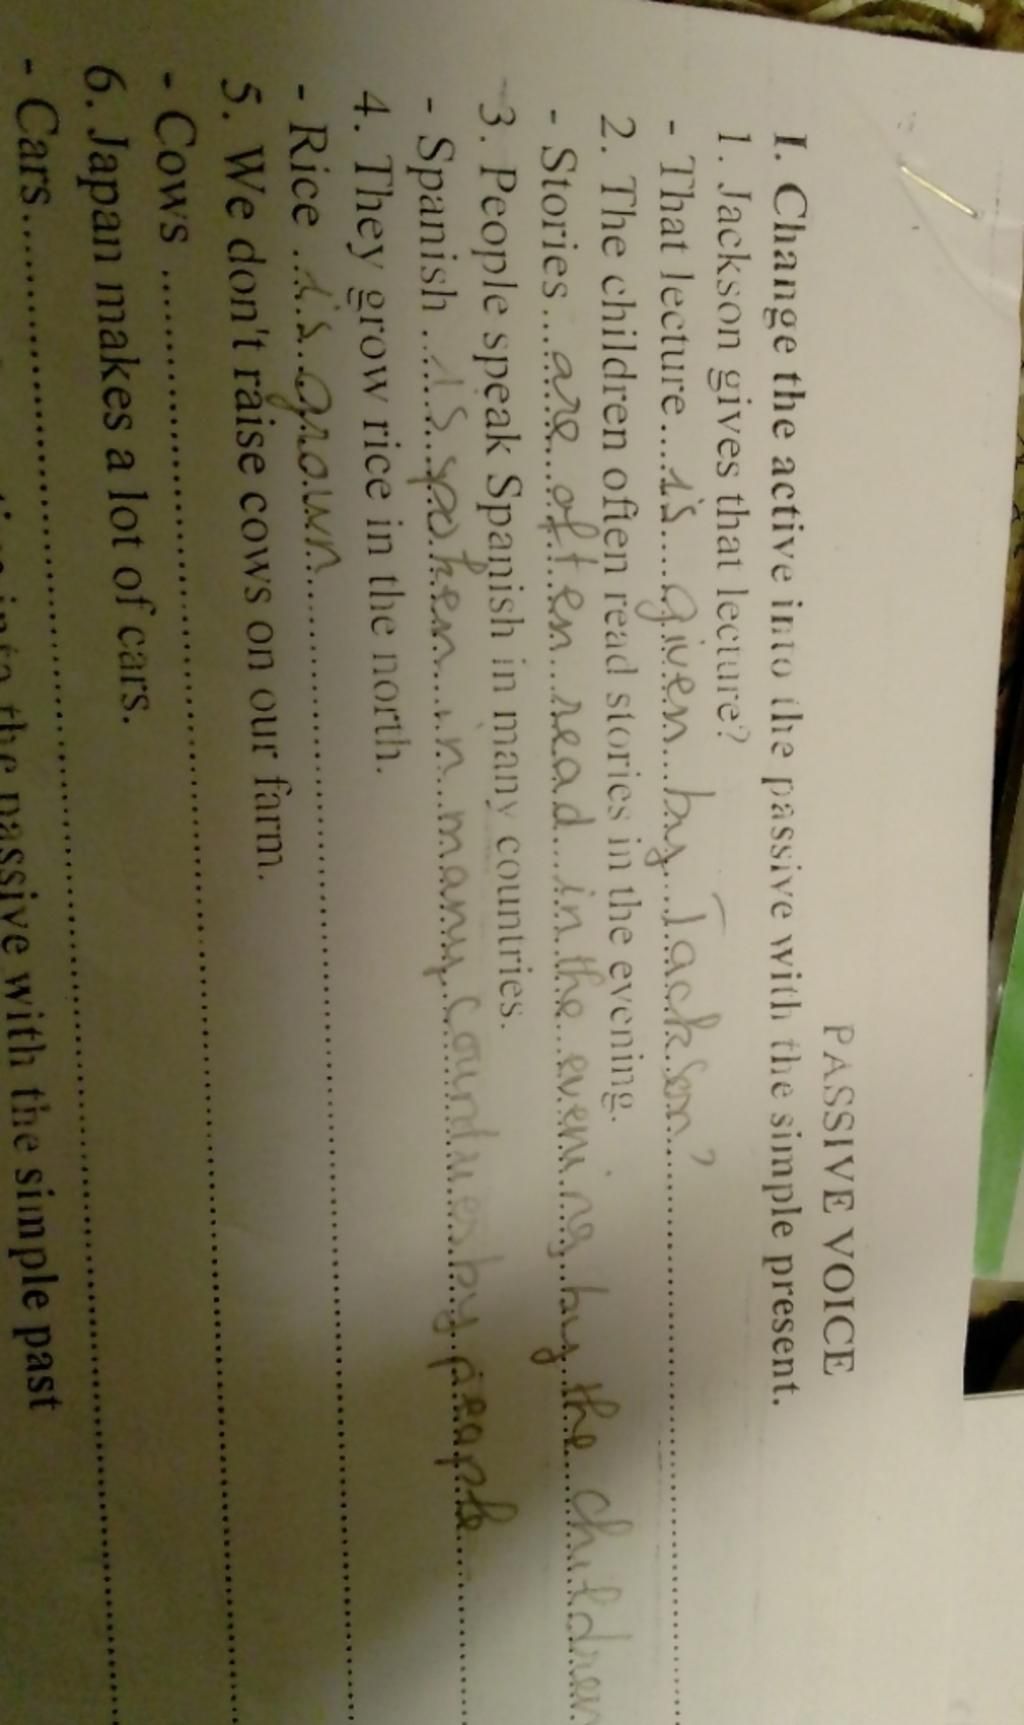 PASSIVE VOICE
I. Change the active into the passive with the simple present.
1. Jackson gives that lecture?
- That lecture ....is....given...by...Jackson?............................
2. The children often read stories in the evening.
- Stories ...are...often...read...in the evening by the children
3. People speak Spanish in many countries.
- Spanish ...is spoken...in many countries by people............
4. They grow rice in the north.
- Rice ...is...grown............................................................
5. We don't raise cows on our farm.
- Cows ............................................................................
6. Japan makes a lot of cars.
- Cars................................................................................
into the passive with the simple past